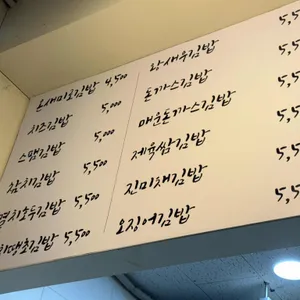 온새미로김밥 4,500
치즈김밥 5,000
스팸김밥 5,000
참치김밥 5,500
멸치호두김밥 5,500
김밥 5,500
왕새우김밥 5,5
돈가스김밥 5,5
매운돈가스김밥 5,5
제육쌈김밥 5,5
진미채김밥 5,5
오징어김밥 5,5